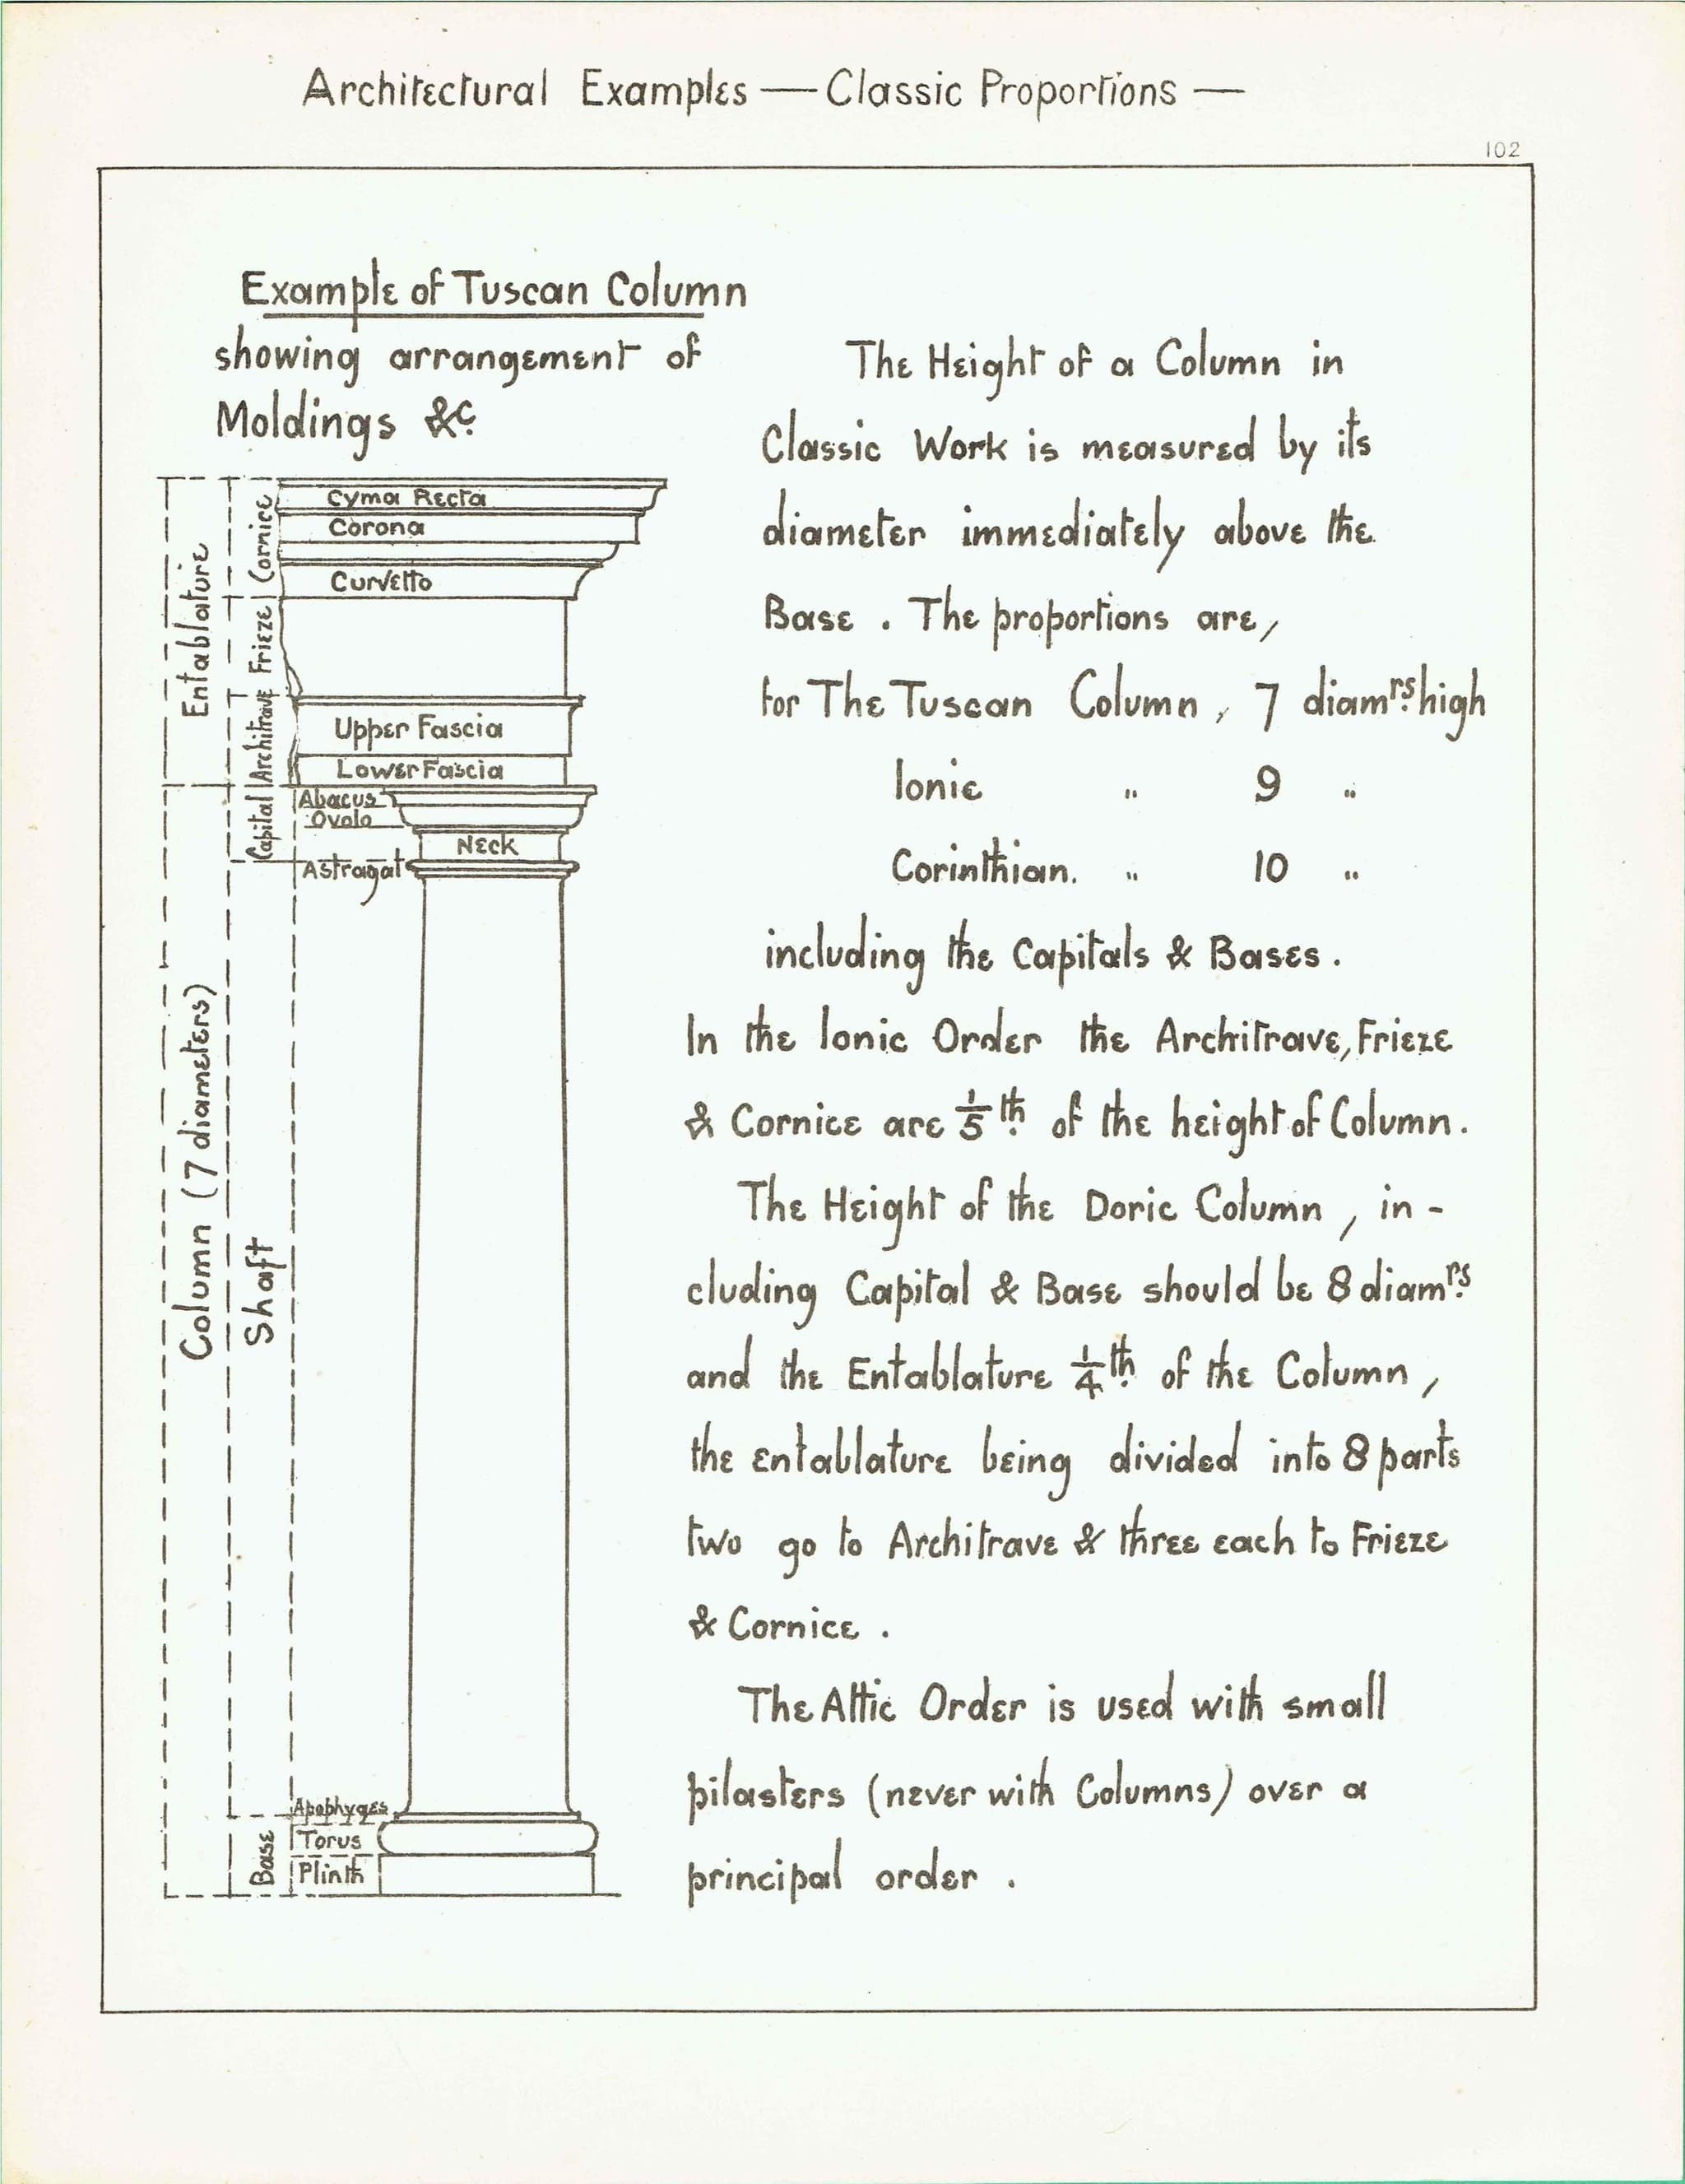 Architectural Examples — Classic Proportions —
102
Example of Tuscan Column
showing arrangement of
Moldings &c.
Cyma Recta
Corona
Curvetto
Upper Fascia
Lower Fascia
Abacus
Ovolo
Neck
Astragal
Apophyges
Torus
Plinth
Entablature
Cornice
Frieze
Architrave
Capital
Column (7 diameters)
Shaft
Base
The Height of a Column in
Classic Work is measured by its
diameter immediately above the
Base. The proportions are,
for The Tuscan Column, 7 diamrs. high
Ionic " 9 "
Corinthian. " 10 "
including the Capitals & Bases.
In the Ionic Order the Architrave, Frieze
& Cornice are 1/5th. of the height of Column.
The Height of the Doric Column, in-
cluding Capital & Base should be 8 diamrs.
and the Entablature 1/4th. of the Column,
the entablature being divided into 8 parts
two go to Architrave & three each to Frieze
& Cornice.
The Attic Order is used with small
pilasters (never with Columns) over a
principal order.